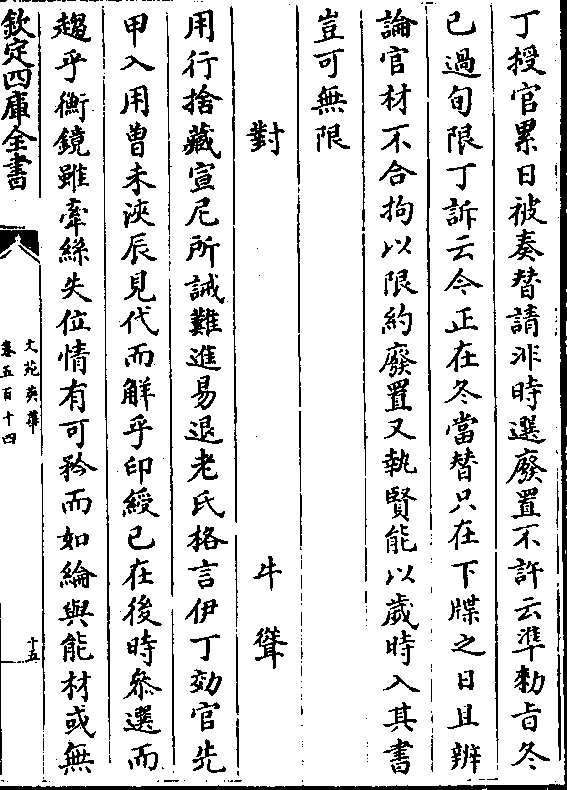 丁授官累日被奏替請非時選廢置不許云準勅旨冬
已過旬限丁訴云令正在冬當替只在下牒之日且辨
論官材不合拘以限約廢置又執賢能以歲時入其書
豈可無限
對 牛聳
用行捨藏宣尼所誡難進易退老氏格言伊丁効官先
甲入用曽未浹辰見代而解乎印綬已在後時叅選而
趨乎衡鏡雖牽絲失位情有可矜而如綸與能材或無
欽定四庫全書
文苑英華
卷五百十四
十五